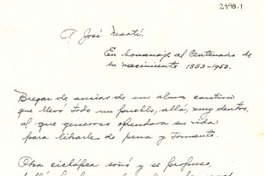 2498.1
A José Martí.
En homenaje al Centenario de
su nacimiento 1853-1953.
Bregar de ansias de un alma cautiva
que llevó todo un pueblo, allá, muy dentro,
al que generoso ofrendara su vida
para librarlo de pena y tormento.
Obra ciclópea soñó y se propuso,